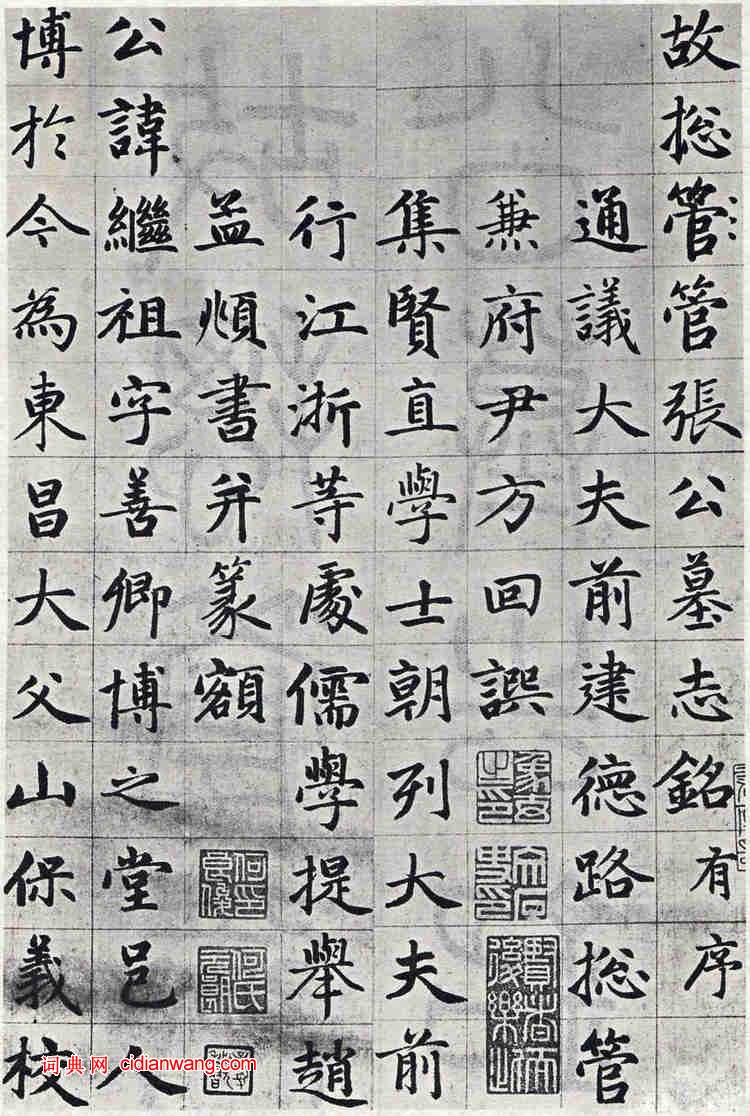 故捴管管張公墓志銘有序
通議大夫前建德路捴管
兼府尹方回譔
集賢直學士朝列大夫前
行江浙等處儒學提舉趙
孟頫書并篆額
公諱繼祖字善卿博之堂邑人
博於今為東昌大父山保義校
词典网 cidianwang.com